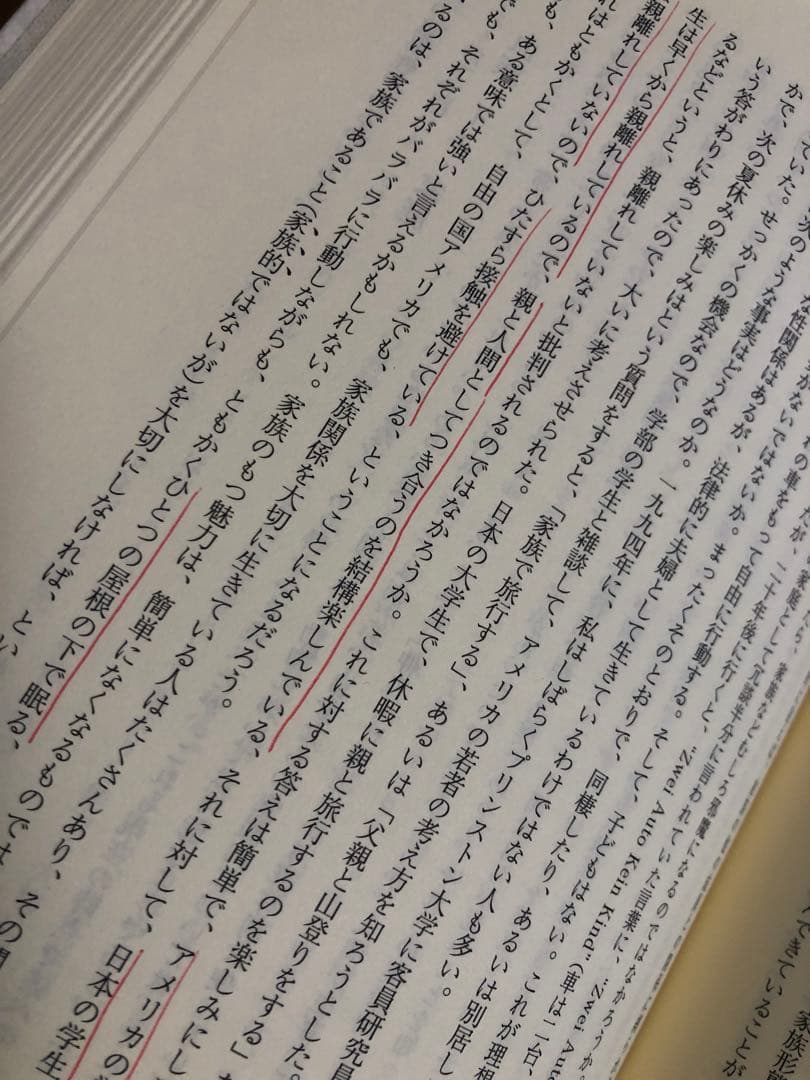 んできていることが
家族形態
家族などむしろ邪魔になるのではなかろうか。
として冗談半分に言われていた言葉に、"Zwei Auto
が、二十年後に行くと、"Zwei Auto Kein Kind"(車は二台、
れの車をもって自由に行動する。そして、子どもはない。これが理想
がないではないか。まったくそのとおりで、同棲したり、あるいは別居し
な性関係はあるが、法律的に夫婦として生きているわけではない人も多い。
次のような事実はどうなのか。一九九四年に、私はしばらくプリンストン大学に客員研究員
ていた。せっかくの機会なので、学部の学生と雑談して、アメリカの若者の考え方を知ろうとした。
かで、次の夏休みの楽しみはという質問をすると、「家族で旅行する」、あるいは「父親と山登りをする」
いう答がわりにあったので、大いに考えさせられた。日本の大学生で、休暇に親と旅行するのを楽しみにし
るなどというと、親離れしていないと批判されるのではなかろうか。これに対する答えは簡単で、アメリカの
生は早くから親離れしているので、親と人間としてつき合うのを結構楽しんでいる、それに対して、日本の学生
親離れしていないので、ひたすら接触を避けている、ということになるだろう。
れはともかくとして、自由の国アメリカでも、家族関係を大切に生きている人はたくさんあり、その
も、ある意味では強いと言えるかもしれない。家族のもつ魅力は、簡単になくなるものでは
でも、それぞれがバラバラに行動しながらも、ともかくひとつの屋根の下で眠る、
るのは、家族であること(家族的ではないが)を大切にしなければ、とい